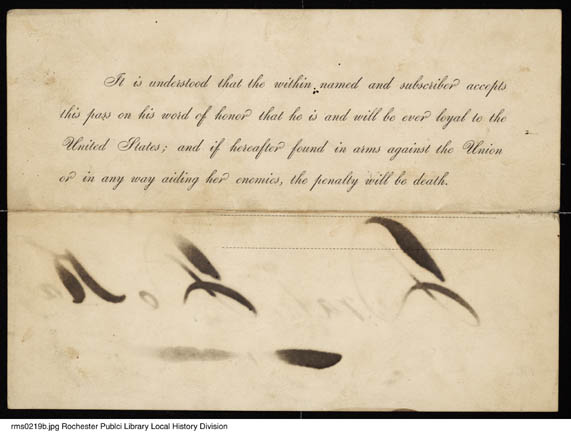 It is understood that the within named and subscriber accepts
this pass on his word of honor that he is and will be ever loyal to the
United States; and if hereafter found in arms against the Union
or in any way aiding her enemies, the penalty will be death.
rms0219b.jpg Rochester Publci Library Local History Division